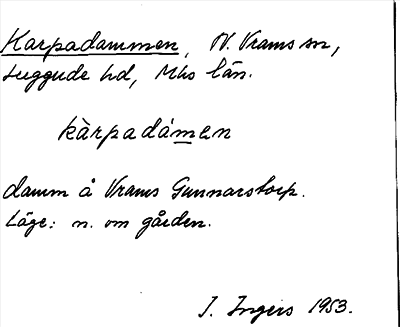 Karpadammen, N. Vrams sn,
Luggude hd, Mhs län.
kàrpadámen
damm å Vrams Gunnarstorp.
Läge: n. om gården.
I. Ingers 1953.